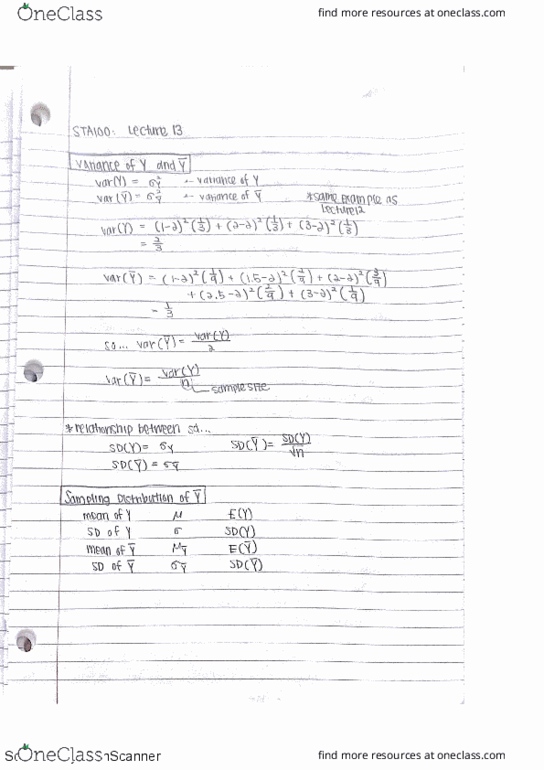 OneClass
find more resources at oneclass.com
STA100: Lecture 13
Variance of Y and Ȳ
var(Y) = σ²_Y ← variance of Y
var(Ȳ) = σ²_Ȳ ← variance of Ȳ
*same example as
lecture 12
var(Y) = (1-2)²(1/3) + (2-2)²(1/3) + (3-2)²(1/3)
= 2/3
var(Ȳ) = (1-2)²(1/9) + (1.5-2)²(2/9) + (2-2)²(3/9)
+ (2.5-2)²(2/9) + (3-2)²(1/9)
= 1/3
so... var(Ȳ) = var(Y)/2
var(Ȳ) = var(Y)/n
sample size
*relationship between sd...
SD(Y) = σY SD(Ȳ) = SD(Y)/√n
SD(Ȳ) = σȲ
Sampling Distribution of Ȳ
mean of Y μ E(Y)
SD of Y σ SD(Y)
mean of Ȳ μȲ E(Ȳ)
SD of Ȳ σȲ SD(Ȳ)
OneClass
Scanner
find more resources at oneclass.com